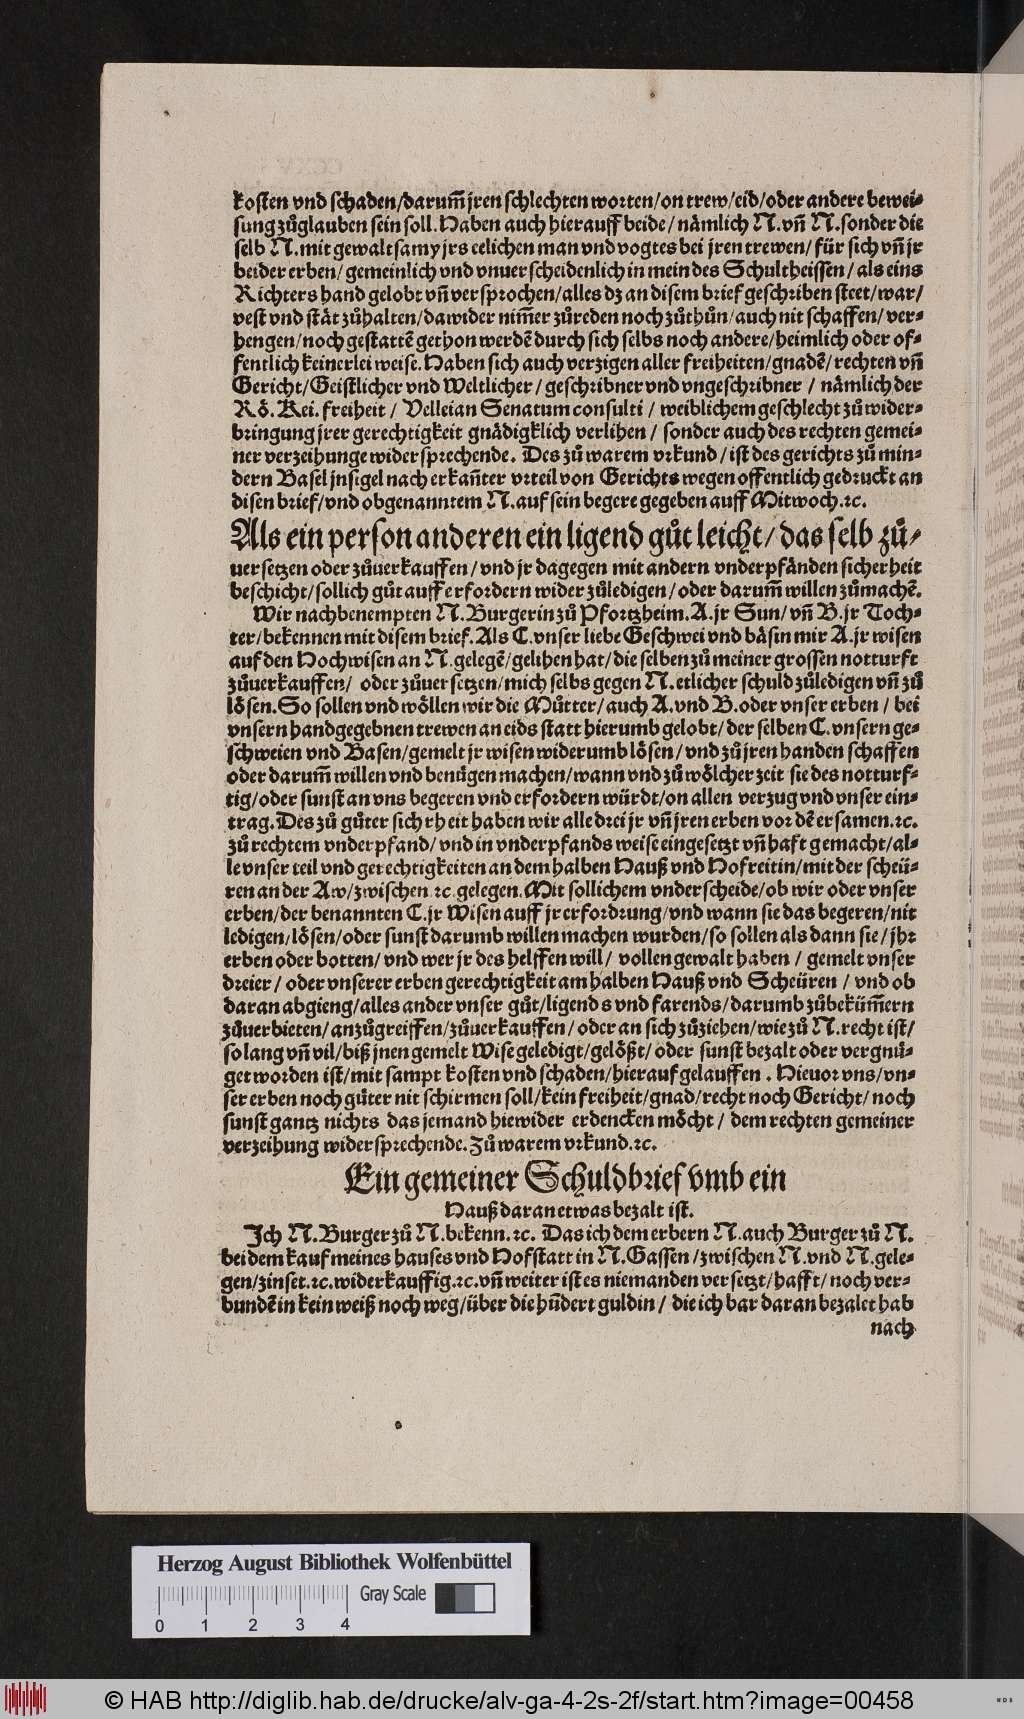 kosten vnd schaden/darum̃ jren schlechten worten/on trew/eid/oder andere bewei⸗
sung zůglauben sein soll. Haben auch hierauff beide/ nämlich N. vñ N. sonder die
selb N. mit gewaltsamy jrs eelichen man vnd vogtes bei jren trewen/ für sich vñ jr
beider erben/ gemeinlich vnd vnuerscheidenlich in mein des Schultheissen/ als eins
Richters hand gelobt vñ versprochen/alles dz an disem brief geschriben steet/war/
vest vnd stät zůhalten/dawider nim̃er zůreden noch zůthůn/auch nit schaffen/ ver⸗
hengen/noch gestattẽ gethon werdẽ durch sich selbs noch andere/heimlich oder of⸗
fentlich keinerlei weise. Haben sich auch verzigen aller freiheiten/gnadẽ/rechten vñ
Gericht/Geistlicher vnd Weltlicher/ geschribner vnd vngeschribner / nämlich der
Rö. Kei. freiheit / Velleian Senatum consulti / weiblichem geschlecht zů wider⸗
bringung jrer gerechtigkeit gnädigklich verlihen / sonder auch des rechten gemei⸗
ner verzeihunge widersprechende. Des zů warem vrkund / ist des gerichts zů min⸗
dern Basel jnsigel nach erkañter vrteil von Gerichts wegen offentlich gedruckt an
disen brief/vnd obgenanntem N. auf sein begere gegeben auff Mitwoch.ꝛc.
Als ein person anderen ein ligend gůt leicht/ das selb zů⸗
uersetzen oder zůuerkauffen/ vnd jr dagegen mit andern vnderpfänden sicherheit
beschicht/sollich gůt auff erfordern wider zůledigen/oder darum̃ willen zůmachẽ.
Wir nachbenempten N. Burgerin zů Pfortzheim. A. jr Sun/ vñ B. jr Toch⸗
ter/bekennen mit disem brief. Als C. vnser liebe Geschwei vnd bäsin mir A. jr wisen
auf den Hochwisen an N. gelegẽ/gelihen hat/die selben zů meiner grossen notturft
zůuerkauffen/ oder zůuersetzen/mich selbs gegen N. etlicher schuld zůledigen vñ zů
lösen. So sollen vnd wöllen wir die Můtter/ auch A. vnd B. oder vnser erben / bei
vnsern handgegebnen trewen an eids statt hierumb gelobt/ der selben C. vnsern ge⸗
schweien vnd Basen/gemelt jr wisen widerumb lösen/ vnd zů jren handen schaffen
oder darum̃ willen vnd benügen machen/wann vnd zů wölcher zeit sie des notturf⸗
tig/oder sunst an vns begeren vnd erfordern würdt/on allen verzug vnd vnser ein⸗
trag. Des zů gůter sicherheit haben wir alle drei jr vñ jren erben vor dẽ ersamen.ꝛc.
zů rechtem vnderpfand/ vnd in vnderpfands weise eingesetzt vñ haft gemacht/al⸗
le vnser teil vnd gerechtigkeiten an dem halben Hauß vnd Hofreitin/mit der scheü⸗
ren an der Aw/zwischen.ꝛc.gelegen. Mit sollichem vnderscheide/ob wir oder vnser
erben/der benannten C. jr Wisen auff jr erfordrung/vnd wann sie das begeren/nit
ledigen/lösen/oder sunst darumb willen machen wurden/so sollen als dann sie/ jhr
erben oder botten/ vnd wer jr des helffen will/ vollen gewalt haben / gemelt vnser
dreier / oder vnserer erben gerechtigkeit am halben Hauß vnd Scheüren / vnd ob
daran abgieng/alles ander vnser gůt/ligends vnd farends/darumb zůbeküm̃ern
zůuerbieten/anzůgreiffen/zůuerkauffen/ oder an sich zůziehen/wie zů N. recht ist/
so lang vñ vil/biß jnen gemelt Wise geledigt/gelößt/ oder sunst bezalt oder vergnü⸗
get worden ist/mit sampt kosten vnd schaden/hierauf gelauffen . Hieuor vns/vn⸗
ser erben noch gůter nit schirmen soll/kein freiheit/gnad/recht noch Gericht/ noch
sunst gantz nichts das jemand hiewider erdencken möcht / dem rechten gemeiner
verzeihung widersprechende. Zů warem vrkund.ꝛc.
Ein gemeiner Schuldbrief vmb ein
Hauß daran etwas bezalt ist.
Ich N. Burger zů N. bekenn.ꝛc. Das ich dem erbern N. auch Burger zů N.
bei dem kauf meines hauses vnd Hofstatt in N. Gassen/zwischen N. vnd N. gele⸗
gen/zinset.ꝛc.widerkauffig.ꝛc.vñ weiter ist es niemanden versetzt/hafft/ noch ver⸗
bundẽ in kein weiß noch weg/über die hũdert guldin / die ich bar daran bezalet hab
nach
Herzog August Bibliothek Wolfenbüttel
Gray Scale
0 1 2 3 4
© HAB http://diglib.hab.de/drucke/alv-ga-4-2s-2f/start.htm?image=00458